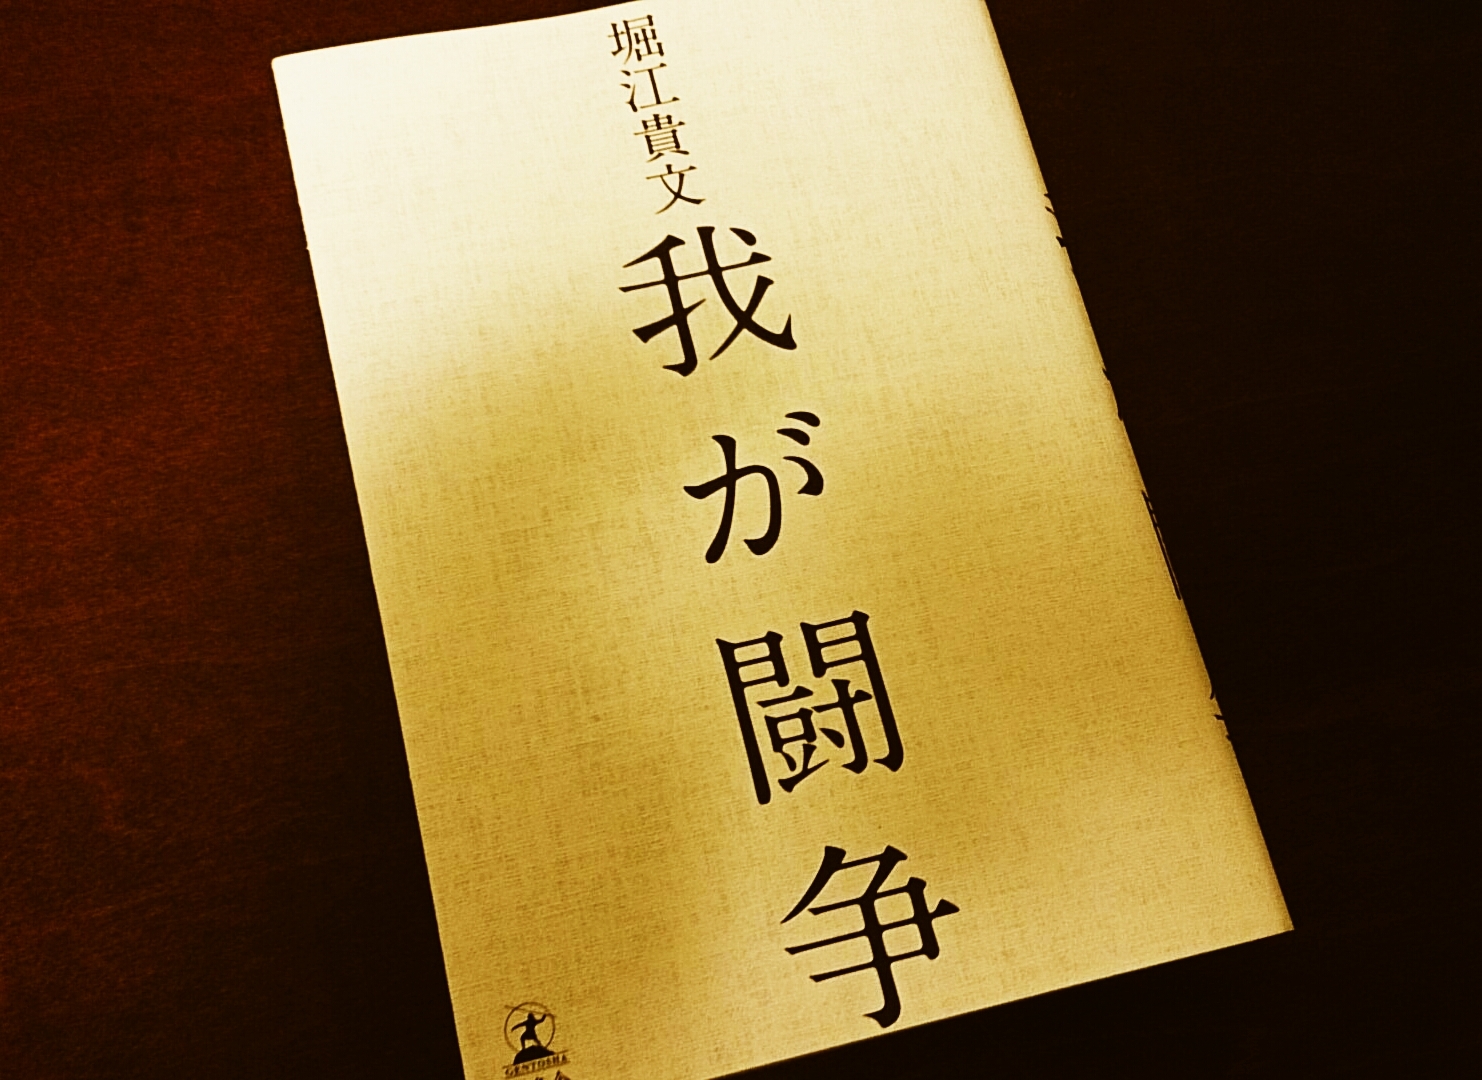 堀江貴文
我が闘争
GENTOSHA